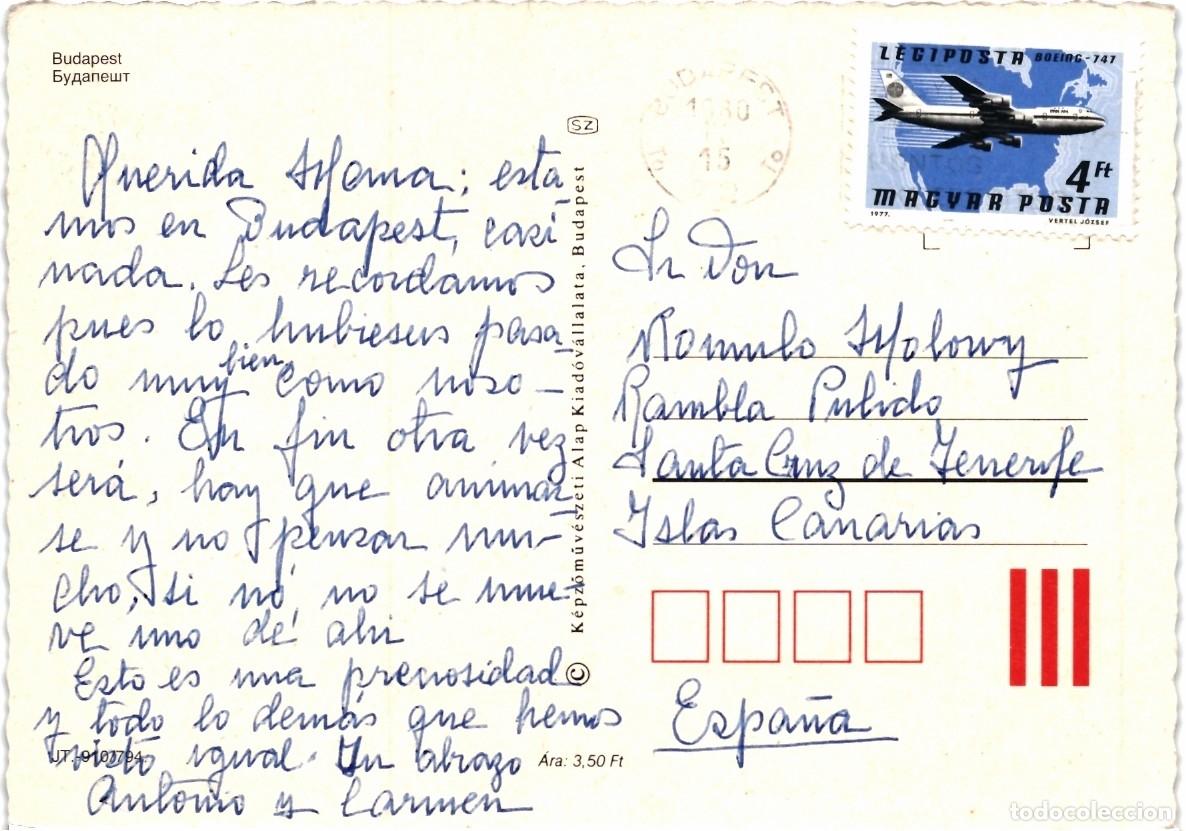 Budapest
Будапешт
LÉGIPOSTA BOEING-747
4 Ft
MAGYAR POSTA
1977. VERTEL JÓZSEF
BUDAPEST
1980
15
SZ
Képzőművészeti Alap Kiadóvállalata, Budapest
©
Querida : esta
mos en Budapest, casi
nada. Les recordamos
pues lo hubieseis pasa-
do muy bien como noso-
tros. En fin otra vez
será, hay que animar
se y no pensar mu-
cho, si nó, no se mue-
ve uno de ahi
Esto es una preciosidad
y todo lo demás que hemos
visto igual. Un abrazo
Antonio y Carmen
JT.-9107794
Ára: 3,50 Ft
Sr Don
Romulo
Rambla Pulido
Santa Cruz de Tenerife
Islas Canarias
España
todocoleccion